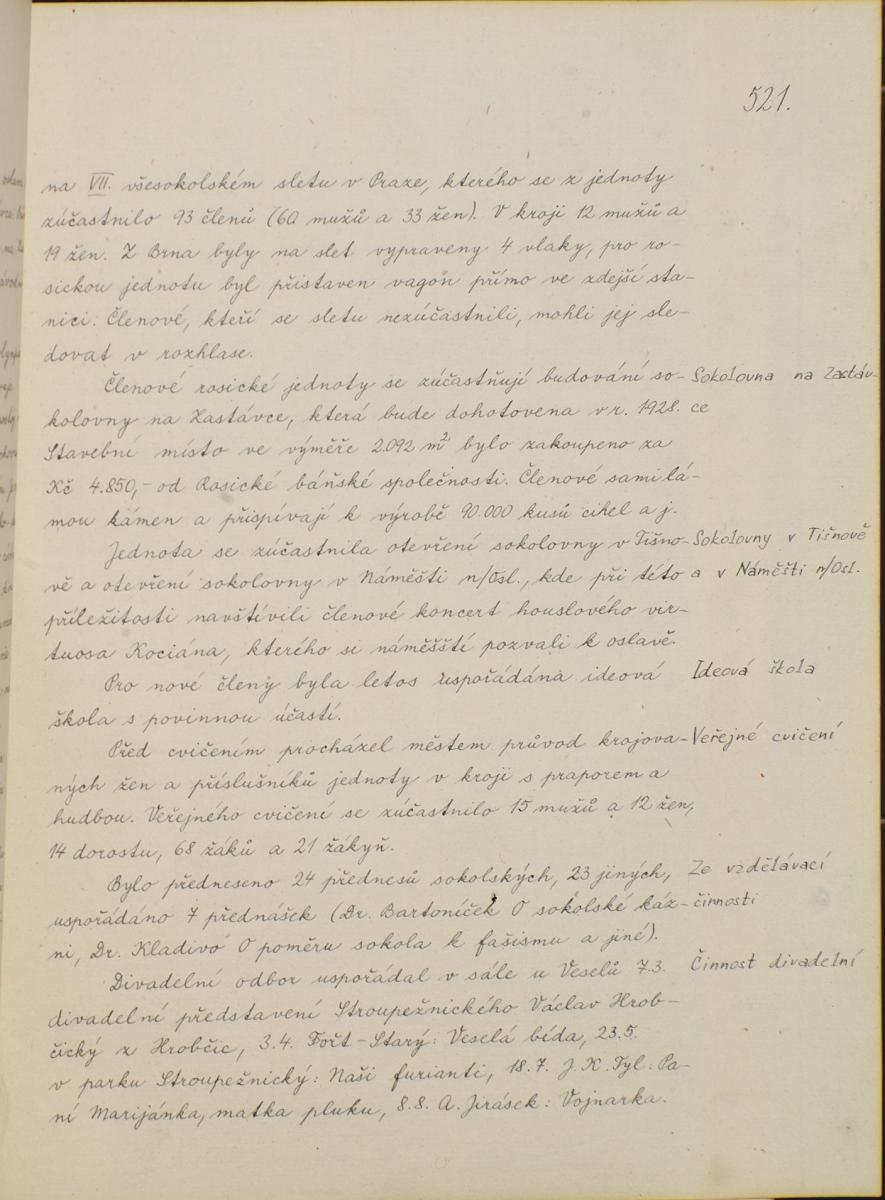 521.
na VII. všesokolském sletu v Praze, kterého se z jednoty
zúčastnilo 93 členů (60 mužů a 33 žen). V kroji 12 mužů a
19 žen. Z Brna byly na slet vypraveny 4 vlaky, pro ro-
sickou jednotu byl přistaven vagón přímo ve zdejší sta-
nici. Členové, kteří se sletu nezúčastnili, mohli jej sle-
dovat v rozhlase.
Členové rosické jednoty se zúčastňují budování so- Sokolovna na Zastáv-
kolovny na Zastávce, která bude dohotovena v r. 1928. ce
Stavební místo ve výměře 2.092 m² bylo zakoupeno za
Kč 4.850,- od Rosické báňské společnosti. Členové sami lá-
mou kámen a přispívají k výrobě 90.000 kusů cihel a j.
Jednota se zúčastnila otevření sokolovny v Tišno- Sokolovny v Tišnově
vě a otevření sokolovny v Náměšti n/Osl., kde při této a v Náměšti n/Osl.
příležitosti navštívili členové koncert houslového vir-
tuosa Kociána, kterého si náměšští pozvali k oslavě.
Pro nové členy byla letos uspořádána ideová Ideová škola
škola s povinnou účastí.
Před cvičením procházel městem průvod krojova- Veřejné cvičení
ných žen a příslušníků jednoty v kroji s praporem a
hudbou. Veřejného cvičení se zúčastnilo 15 mužů a 12 žen,
14 dorostu, 68 žáků a 21 žákyň.
Bylo předneseno 24 přednesů sokolských, 23 jiných, Ze vzdělávací
uspořádáno 7 přednášek (Dr. Bartoníček O sokolské káz- činnosti
ni, Dr. Kladivo O poměru sokola k fašismu a jiné).
Divadelní odbor uspořádal v sále u Veselů 7.3. Činnost divadelní
divadelní představení Stroupežnického Václav Hrob-
čický z Hrobčic, 3.4. Fořt-Starý: Veselá bída, 23.5.
v parku Stroupežnický: Naši furianti, 18.7. J.K. Tyl: Pa-
ní Marijánka, matka pluku, 8.8. A. Jirásek: Vojnarka.